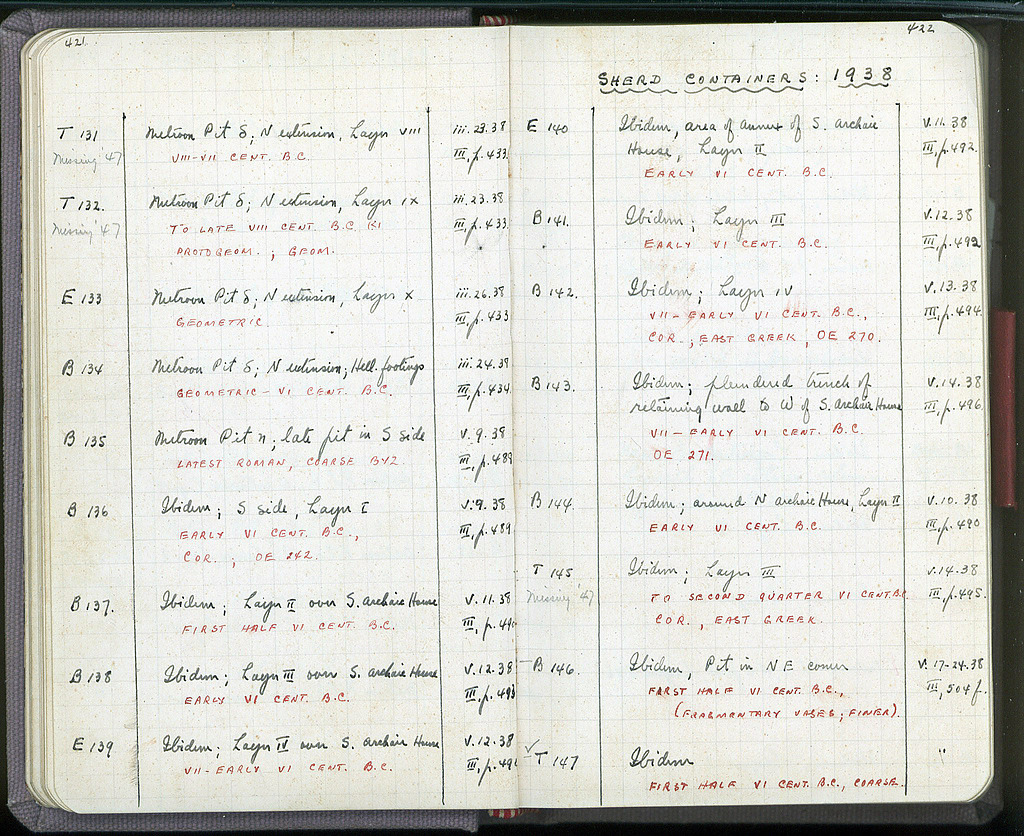 421
T 131 Metroon Pit δ; N extension, Layer VIII iii.23.38
Missing '47 VIII-VII CENT. B.C. III, p.433
T 132. Metroon Pit δ; N extension, Layer IX iii.23.38
Missing '47 TO LATE VIII CENT. B.C. III, p.433
PROTOGEOM.; GEOM.
E 133 Metroon Pit δ; N extension, Layer X iii.26.38
GEOMETRIC. III, p.433
B 134 Metroon Pit δ; N extension; Hell. footings iii.24.38
GEOMETRIC - VI CENT. B.C. III, p.434
B 135 Metroon Pit η; late pit in S side V.9.38
LATEST ROMAN, COARSE BYZ. III, p.489
B 136 Ibidem; S side, Layer I V.9.38
EARLY VI CENT. B.C., III, p.489
COR.; OE 242.
B 137. Ibidem; Layer II over S. archaic House V.11.38
FIRST HALF VI CENT. B.C. III, p.
B 138 Ibidem; Layer III over S. archaic House V.12.38
EARLY VI CENT. B.C. III, p.493
E 139 Ibidem; Layer IV over S. archaic House V.12.38
VII-EARLY VI CENT. B.C. III, p.
422
SHERD CONTAINERS: 1938
E 140 Ibidem, area of annex of S. archaic V.11.38
House, Layer II III, p.492.
EARLY VI CENT. B.C.
B 141. Ibidem; Layer III V.12.38
EARLY VI CENT. B.C. III, p.492
B 142. Ibidem; Layer IV V.13.38
VII - EARLY VI CENT. B.C., III, p.494.
COR.; EAST GREEK, OE 270.
B 143. Ibidem; plundered trench of V.14.38
retaining wall to W of S. archaic House III, p.496.
VII - EARLY VI CENT. B.C.
OE 271.
B 144. Ibidem; around N archaic House, Layer II V.10.38
EARLY VI CENT. B.C. III, p.490
T 145 Ibidem; Layer III V.14.38
Missing '47 TO SECOND QUARTER VI CENT. B.C. III, p.495.
COR., EAST GREEK.
B 146. Ibidem, Pit in NE corner V.17-24.38
FIRST HALF VI CENT. B.C., III, 504 f.
(FRAGMENTARY VASES; FINER).
✓ T 147 Ibidem "
FIRST HALF VI CENT. B.C., COARSE.